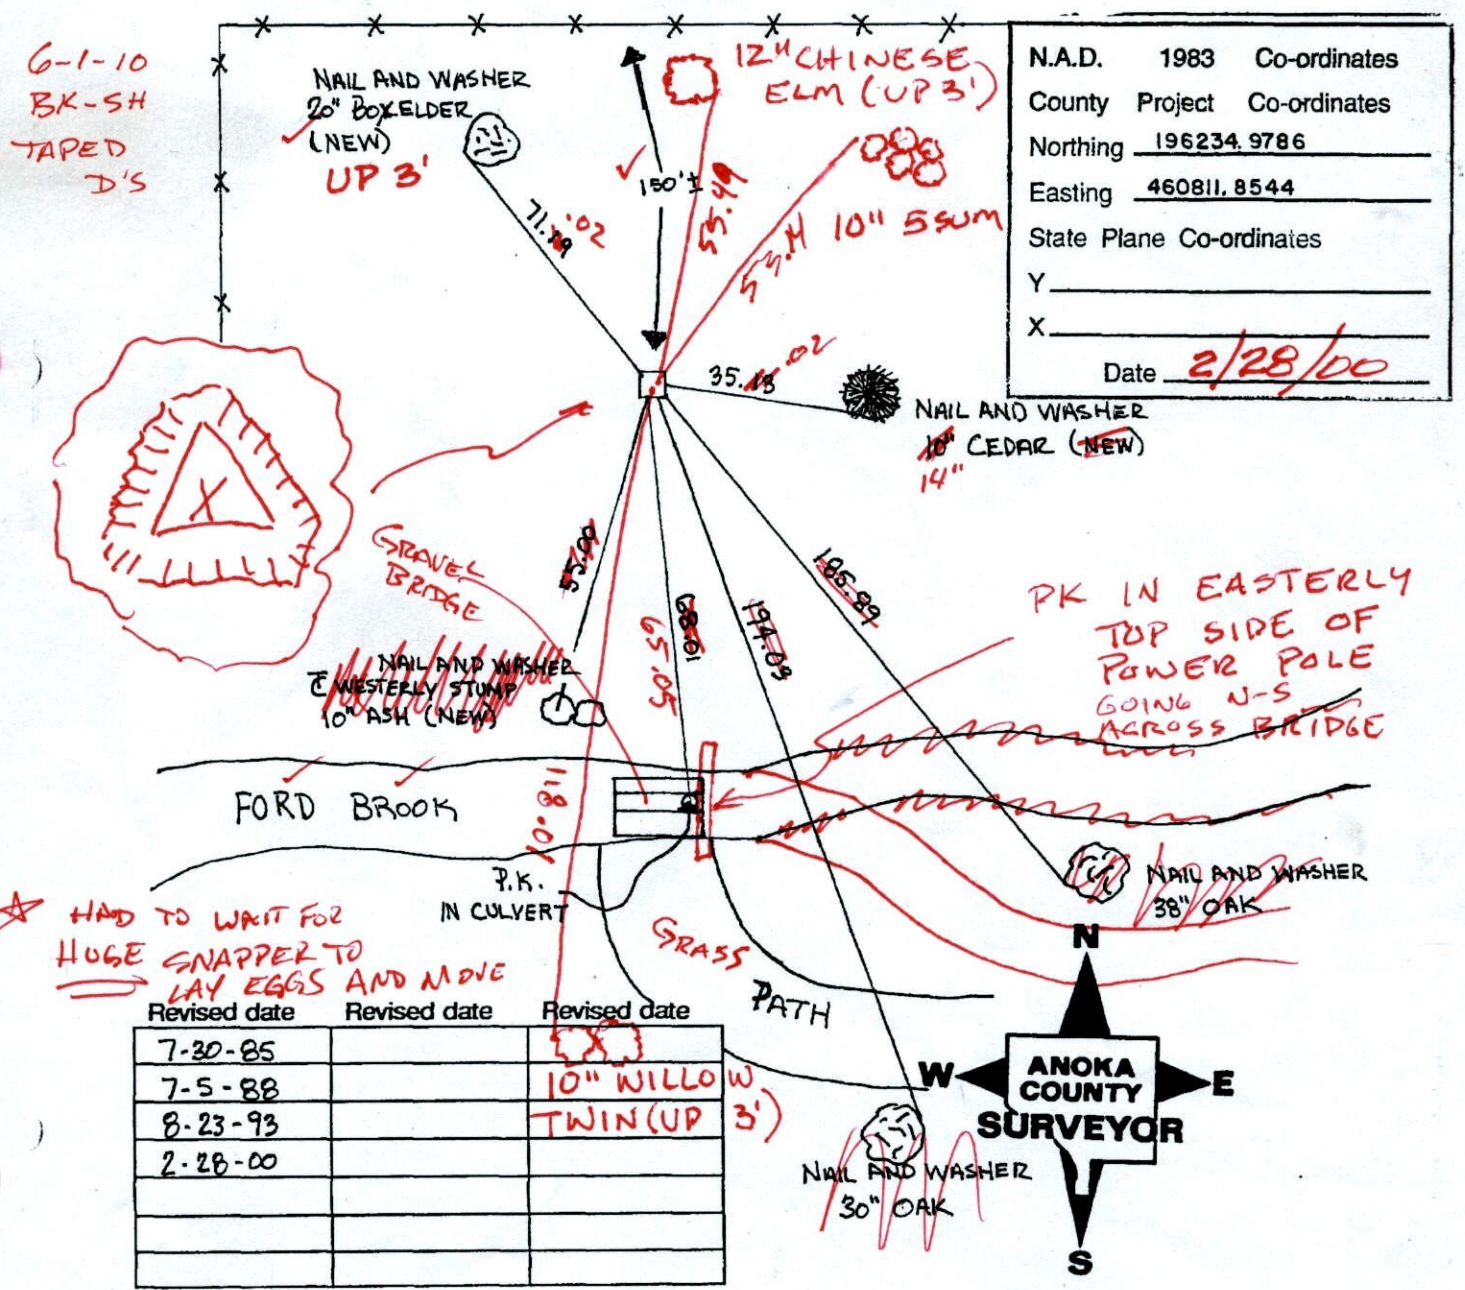 6-1-10
BK-SH
TAPED
D'S
NAIL AND WASHER
20" BOXELDER
(NEW)
UP 3'
12" CHINESE
ELM (UP 3')
150'±
71.
.02
55.49
10" 5 SUM
N.A.D. 1983 Co-ordinates
County Project Co-ordinates
Northing 196234.9786
Easting 460811.8544
State Plane Co-ordinates
Y
X
Date 2/28/00
35.13
.02
NAIL AND WASHER
10" CEDAR (NEW)
14"
X
GRAVEL
BRIDGE
55.00
68.01
65.05
194.03
185.89
PK IN EASTERLY
TOP SIDE OF
POWER POLE
GOING N-S
ACROSS BRIDGE
NAIL AND WASHER
℄ WESTERLY STUMP
10" ASH (NEW)
FORD BROOK
118.01
P.K.
IN CULVERT
NAIL AND WASHER
38" OAK
HAD TO WAIT FOR
HUGE SNAPPER TO
LAY EGGS AND MOVE
GRASS
PATH
Revised date Revised date Revised date
7-30-85
7-5-88
8-23-93
2-28-00
10" WILLOW
TWIN (UP 3')
NAIL AND WASHER
30" OAK
N
W
E
S
ANOKA
COUNTY
SURVEYOR